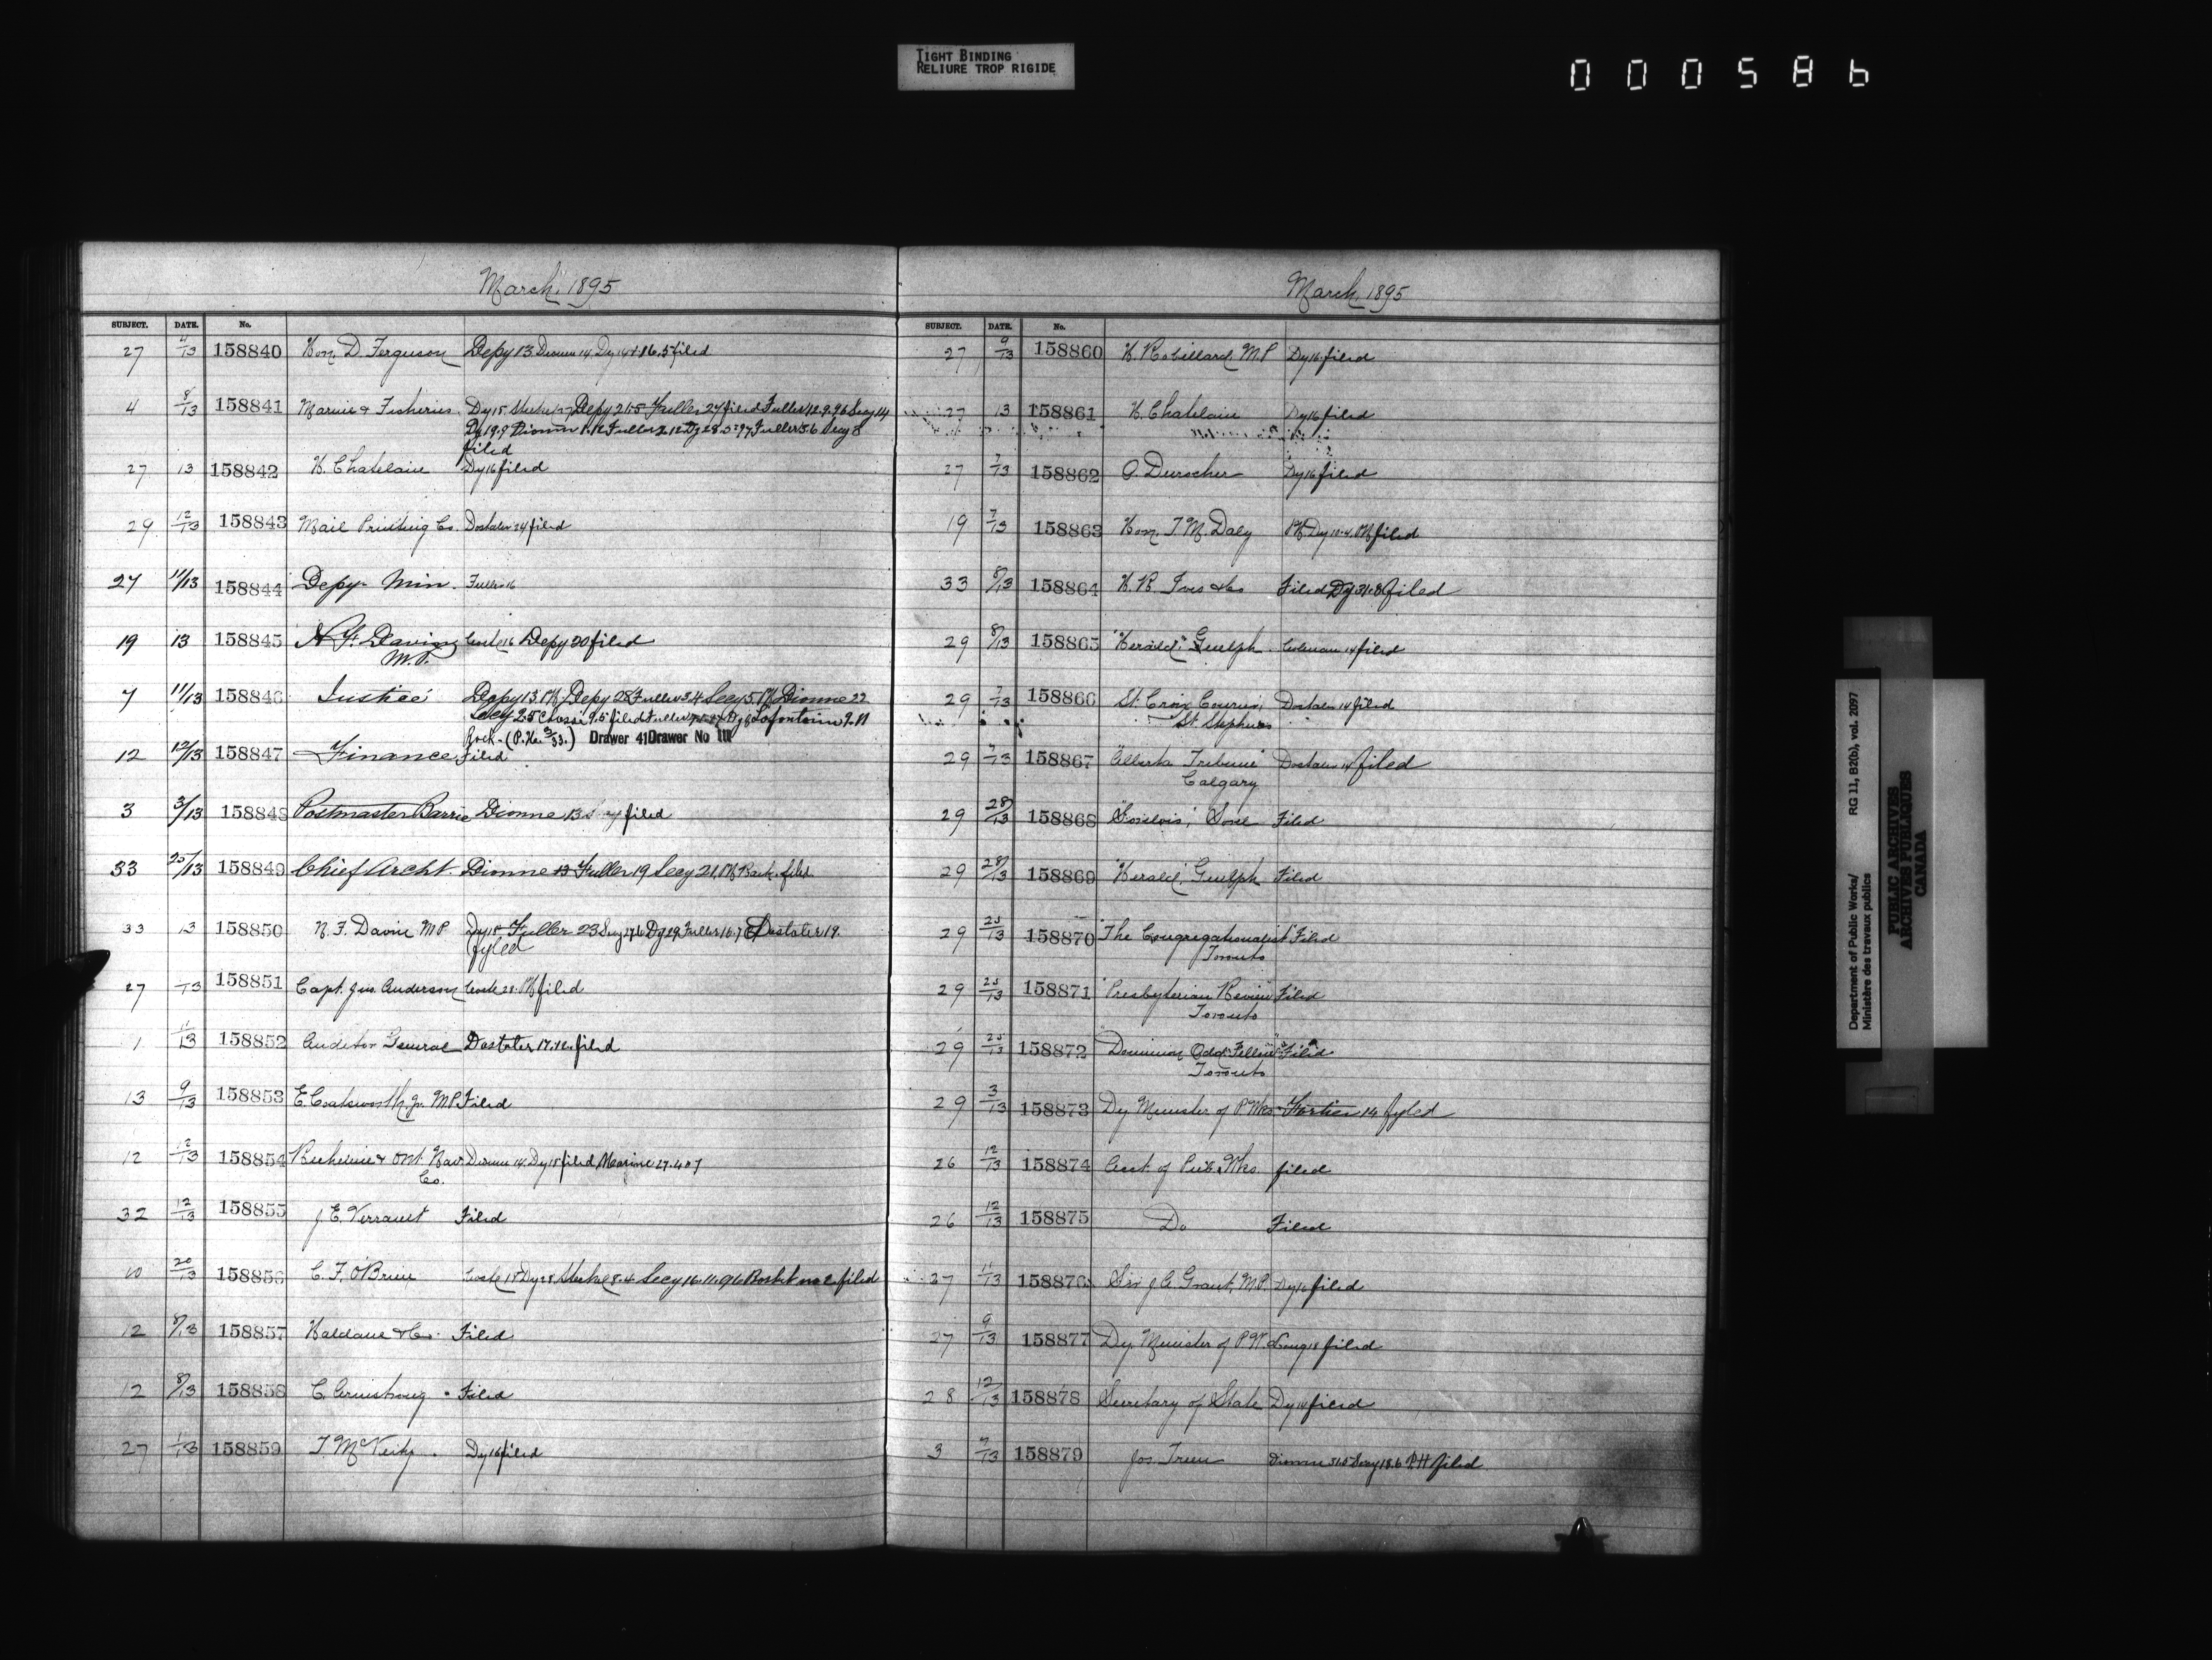 TIGHT BINDING
RELIURE TROP RIGIDE
000586
March, 1895
SUBJECT. DATE. No.
27 4/13 158840 Hon. D. Ferguson Depy 13 Dionne 14 Dy 14 filed
4 8/13 158841 Marine & Fisheries Dy 15 Depy 21.5 Fuller 27 filed Fuller 12.9.96 Secy 14
Dy 19.9 Dionne 1.12 Fuller 2.12 Dy 28.5.97 Fuller 3.6 Secy 8
filed
27 13 158842 H. Chatelain Dy 16 filed
29 12/13 158843 Mail Printing Co. Dostaler 24 filed
27 11/13 158844 Depy Min. Fuller 16
19 13 158845 N. F. Davin Coste 16 Depy 20 filed
M.P.
7 11/13 158846 Justice Depy 13 Depy 28 Fuller 3.4 Secy 5 Dionne 22
Secy 25 9.5 filed Fuller Dy 6 Lafontaine 9.11
Rock. (P.H. 3/33.) Drawer 41 Drawer No
12 12/13 158847 Finance Filed
3 3/13 158848 Postmaster Barrie Dionne 13 filed
33 25/13 158849 Chief Archt. Dionne 13 Fuller 19 Secy 21 filed
33 13 158850 N. F. Davin MP Dy 15 Fuller 23 Secy Dy 29 Fuller 16.7 Dostaler 19.
fyled
27 13 158851 Capt. Jas. Anderson Coste 28 filed
1 11/13 158852 Auditor General Dostaler 17.12. filed
13 9/13 158853 E. Coatsworth Jr. MP. Filed
12 12/13 158854 Richelieu & Ont. Nav. Dionne 14 Dy 15 filed Marine 27.4.07
Co.
32 12/13 158855 J. E. Verrault Filed
10 20/13 158856 C. F. O'Brien Coste 15 Dy 28 8.4 Secy 16.11.96 filed
12 8/13 158857 Haldane & Co. Filed
12 8/13 158858 C. Armstrong Filed
27 1/13 158859 T. McVeity. Dy 16 filed
March, 1895
SUBJECT. DATE. No.
27 9/13 158860 H. Robillard M.P Dy 16 filed
27 13 158861 H. Chatelain Dy 16 filed
27 7/13 158862 A. Durocher Dy 16 filed
19 7/13 158863 Hon. T. M. Daly Dy 10.4. filed
33 8/13 158864 H. R. Ives & Co Filed Dy 31.8 filed
29 8/13 158865 "Herald," Guelph Coleman 14 filed
29 7/13 158866 St. Croix Courier, Dostaler 14 filed
St. Stephens
29 7/13 158867 "Alberta Tribune" Dostaler 14 filed
Calgary
29 28/13 158868 Sorel Filed
29 28/13 158869 "Herald," Guelph Filed
29 25/13 158870 "The Congregationalist" Filed
Toronto
29 25/13 158871 "Presbyterian Review" Filed
Toronto
29 25/13 158872 "Dominion Odd Fellow" Filed
Toronto
29 3/13 158873 Dy Minister of P. Wks Fortier 14 fyled
26 12/13 158874 Acct. of Pub. Wks. filed
26 12/13 158875 Do Filed
27 11/13 158876 Sir J. A. Grant, M.P. Dy 16 filed
27 9/13 158877 Dy. Minister of P. W. filed
28 12/13 158878 Secretary of State Dy 14 filed
3 7/13 158879 Jos. Dionne Secy 18.6 P.H filed
Department of Public Works/ RG 11, B2(b), vol. 2097
Ministère des travaux publics
PUBLIC ARCHIVES
ARCHIVES PUBLIQUES
CANADA